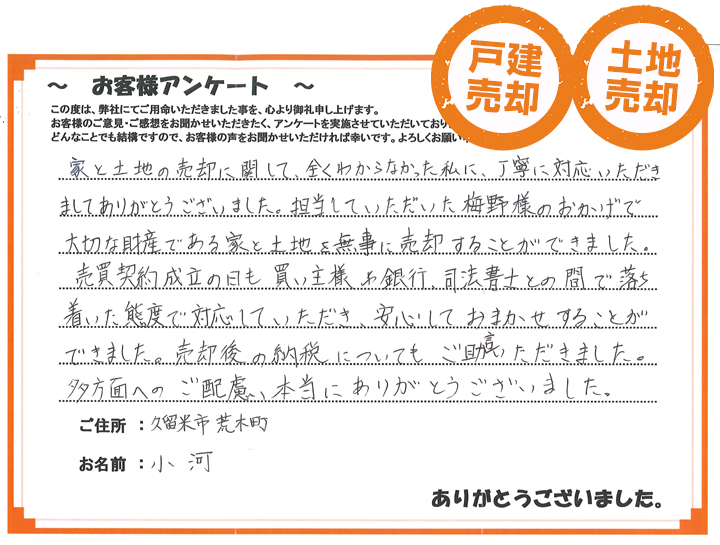 戸建
売却
土地
売却
～ お客様アンケート ～
この度は、弊社にてご用命いただきました事を、心より御礼申し上げます。
お客様のご意見・ご感想をお聞かせいただきたく、アンケートを実施させていただいており
どんなことでも結構ですので、お客様の声をお聞かせいただければ幸いです。よろしくお願い
家と土地の売却に関して、全くわからなかった私に、丁寧に対応いただき
ましてありがとうございました。担当していただいた梅野様のおかげで
大切な財産である家と土地を無事に売却することができました。
売買契約成立の日も買い主様や銀行、司法書士との間で落ち
着いた態度で対応していただき、安心しておまかせすることが
できました。売却後の納税についてもご助言いただきました。
多方面へのご配慮、本当にありがとうございました。
ご住所 ： 久留米市荒木町
お名前 ： 小河
ありがとうございました。